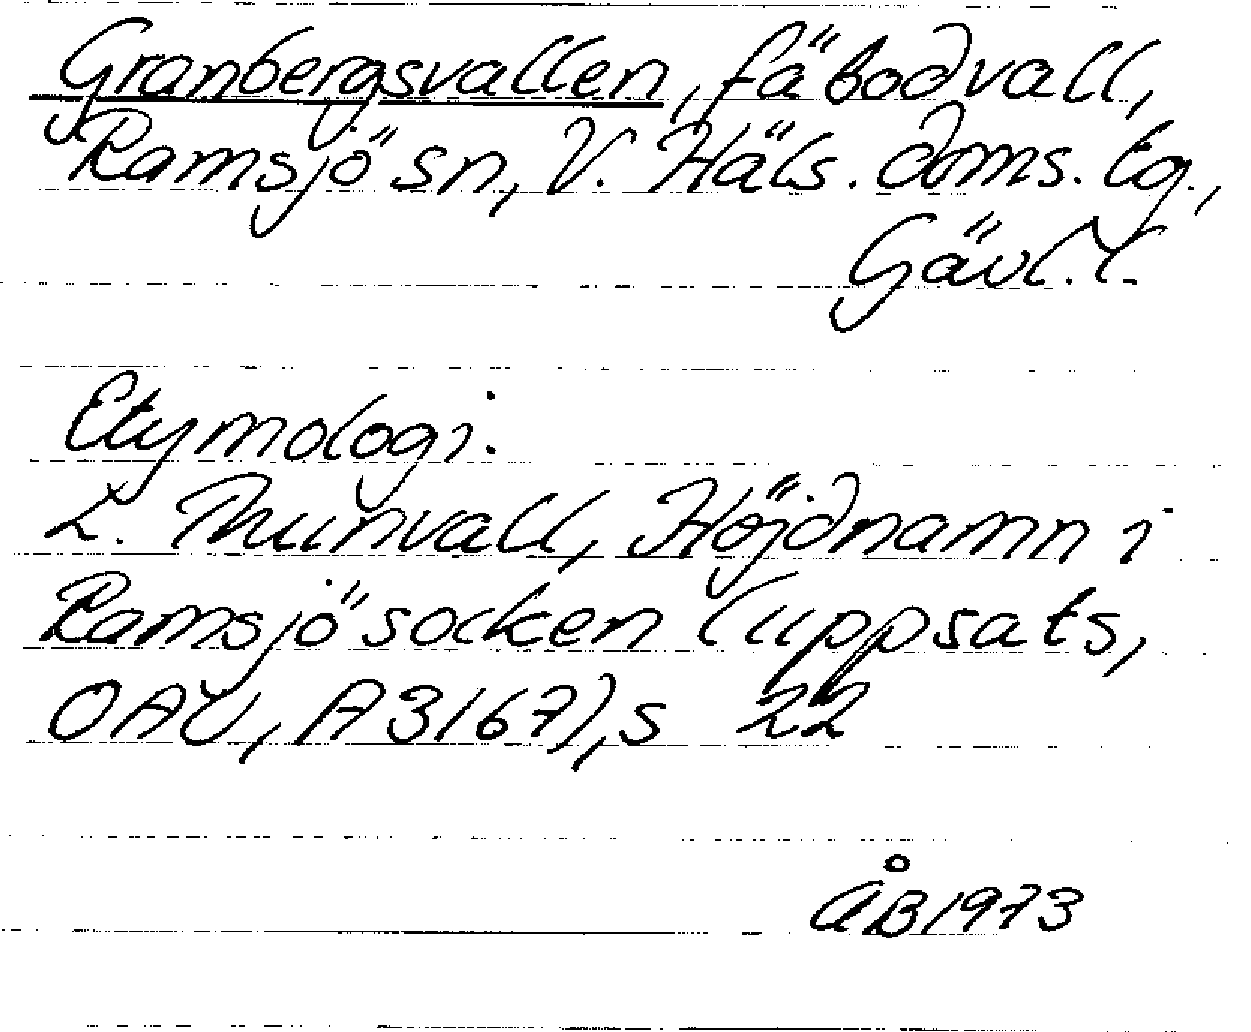 Granbergsvallen, fäbodvall,
Ramsjö sn, V. Häls. doms. tg.,
Gävl. l.
Etymologi.
L. Thunvall, Höjdnamn i
Ramsjö socken (uppsats,
OAU, A3167), s 22
ÅB 1973